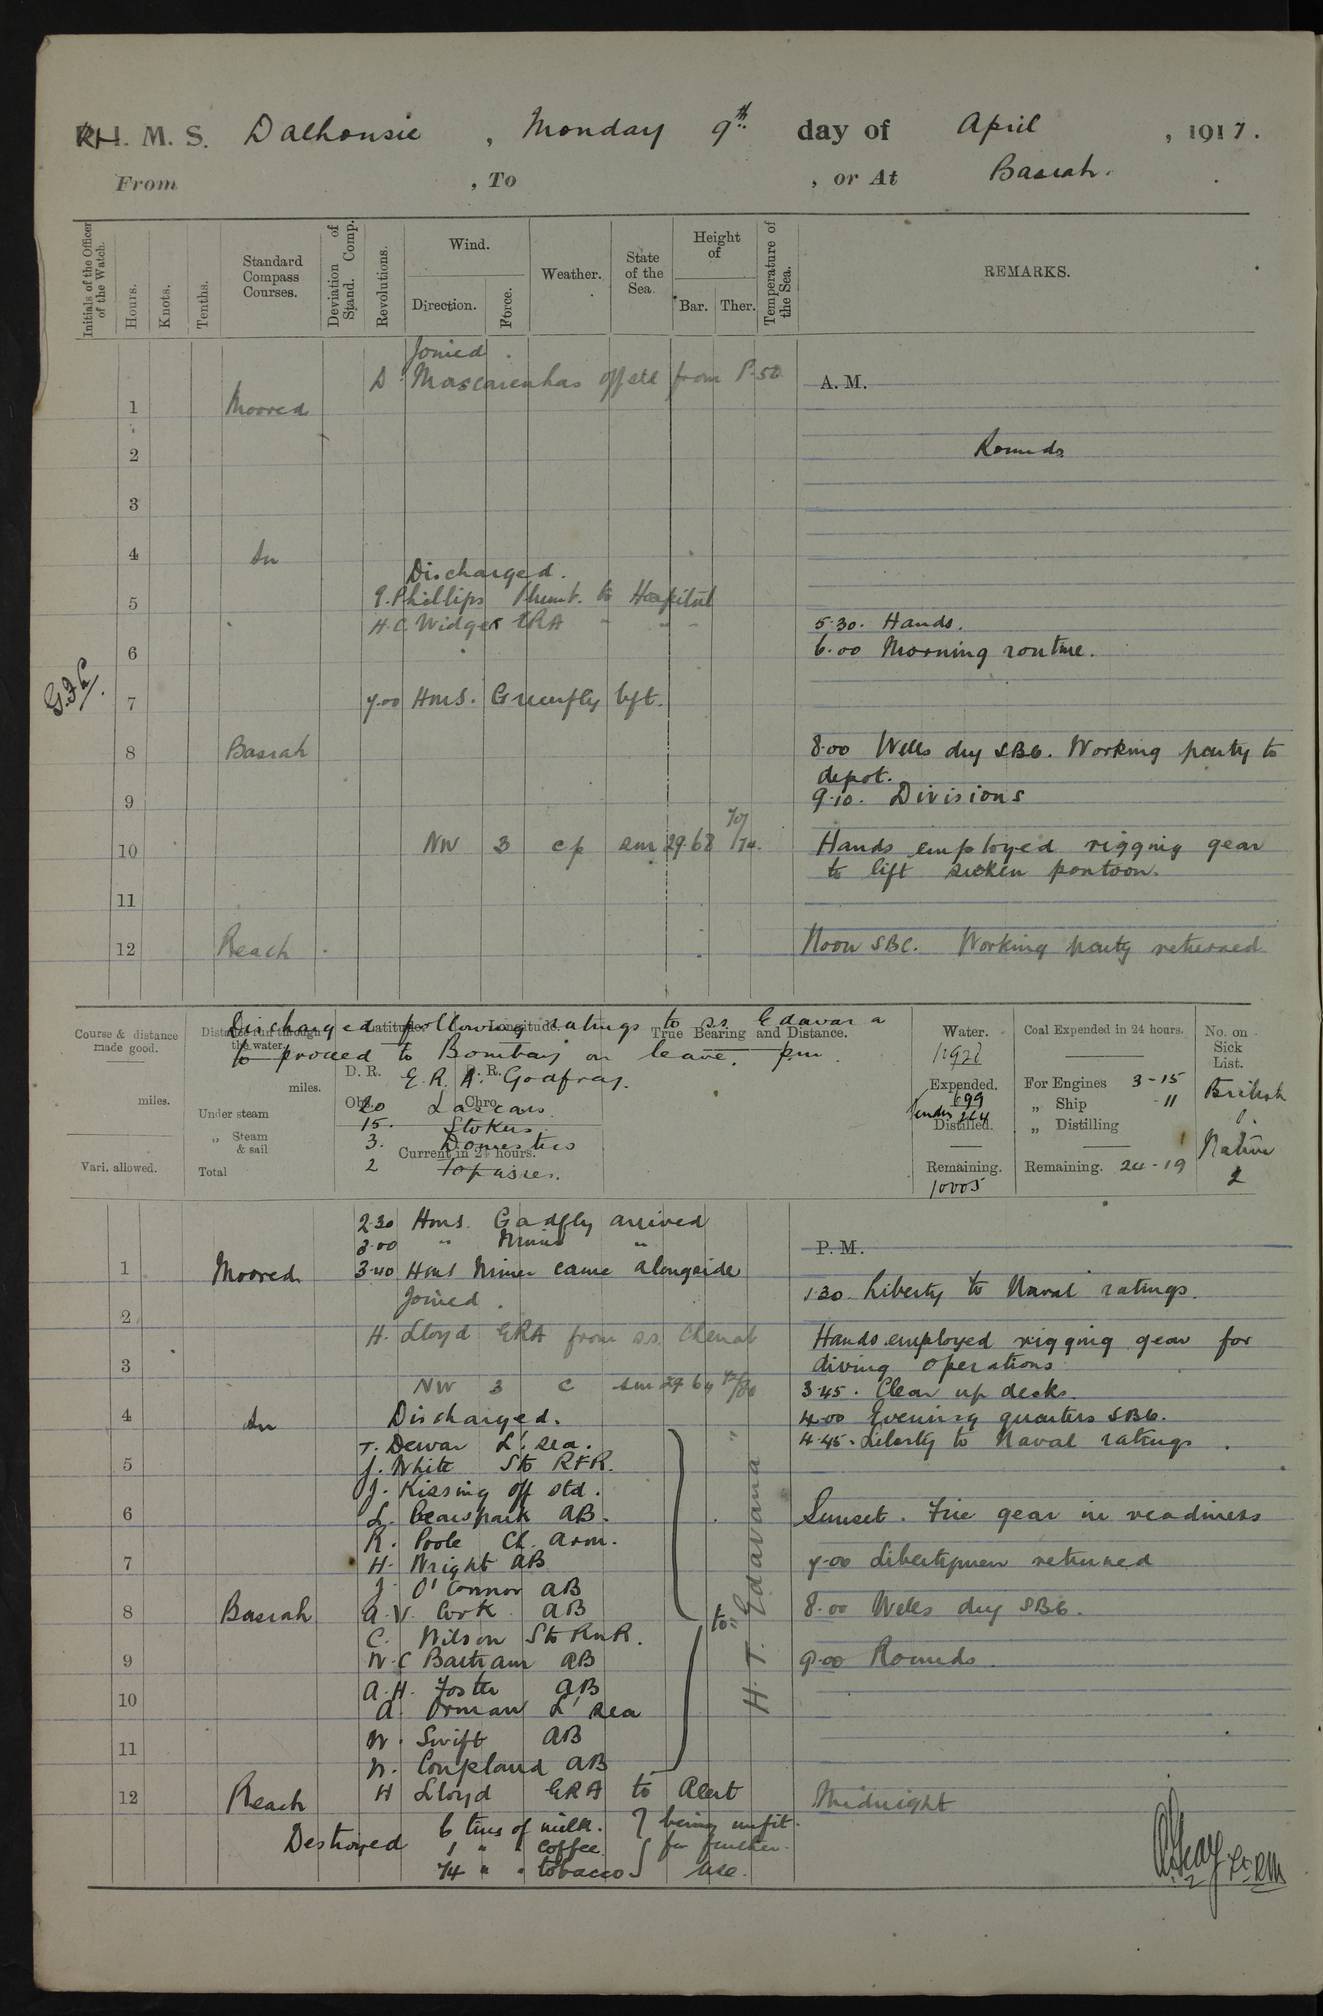 R.H. M. S. Dalhousie , Monday 9th day of April , 1917.
From , To , or At Basrah.
Initials of the Officer of the Watch.
Hours.
Knots.
Tenths.
Standard Compass Courses.
Deviation of Stand. Comp.
Revolutions.
Wind.
Direction.
Force.
Weather.
State of the Sea.
Height of
Bar. Ther.
Temperature of the Sea.
REMARKS.
Joined.
D. Mascarenhas off std from P.50
A. M.
1 Moored
2 Rounds
3
4 In
Discharged.
5 Phillips Plumb. to Hospital
H.C. Widger ERA " " "
5.30. Hands.
6 6.00 Morning routine.
7 7.00 HMS. Greenfly left.
8 Basrah 8.00 Wells dry SBC. Working party to
depot.
9 9.10. Divisions
10 NW 3 cp sm 29.68 74. Hands employed rigging gear
to lift sunken pontoon.
11
12 Reach Noon SBC. Working party returned
Discharged following ratings to ss. Edavana
to proceed to Bombay on leave. pm.
E.R.A. Godfray.
20 Lascars
15. Stokers
3. Domestics
2 Topasses.
Course & distance made good.
miles.
Vari. allowed.
Distance run through the water.
miles.
Under steam
„ Steam & sail
Total
Latitude. Longitude.
D. R. D. R.
Obs. Chro.
Current in 24 hours.
True Bearing and Distance.
Water.
Expended.
699
Distilled.
Remaining.
10005
Coal Expended in 24 hours.
For Engines 3-15
„ Ship -11
„ Distilling
Remaining. 24-19
No. on Sick List.
British
1.
Native
2
2.30 HMS. Gadfly arrived
3.00 " Miner "
P. M.
1 Moored 3.40 HMS Miner came alongside
1.30 Liberty to Naval ratings.
Joined.
2 H. Lloyd ERA from ss. Chenab
Hands employed rigging gear for
3 diving operations
NW 3 c sm 29.64
3.45. Clear up decks.
4 In Discharged. 4.00 Evening quarters SBC.
T. Dewar L. sea. 4.45. Liberty to Naval ratings.
5 J. White Sto RFR.
J. Kissing off std.
6 L. Bearspark AB. Sunset. Fire gear in readiness
R. Poole Ch. Arm.
7 H. Wright AB 7.00 Libertymen returned
J. O'Connor AB
8 Basrah A.V. Cork AB 8.00 Wells dry SBC.
to H.T. Edavana
C. Wilson Sto RNR.
9 W.C Bartram AB 9.00 Rounds.
10 A.H. Foster AB
A. Orman L. sea
W. Swift AB
11 W. Coupland AB
12 Reach H Lloyd ERA to Alert Midnight
Destroyed 6 tins of milk. } being unfit
1 " " coffee. } for further
74 " " tobacco } use.